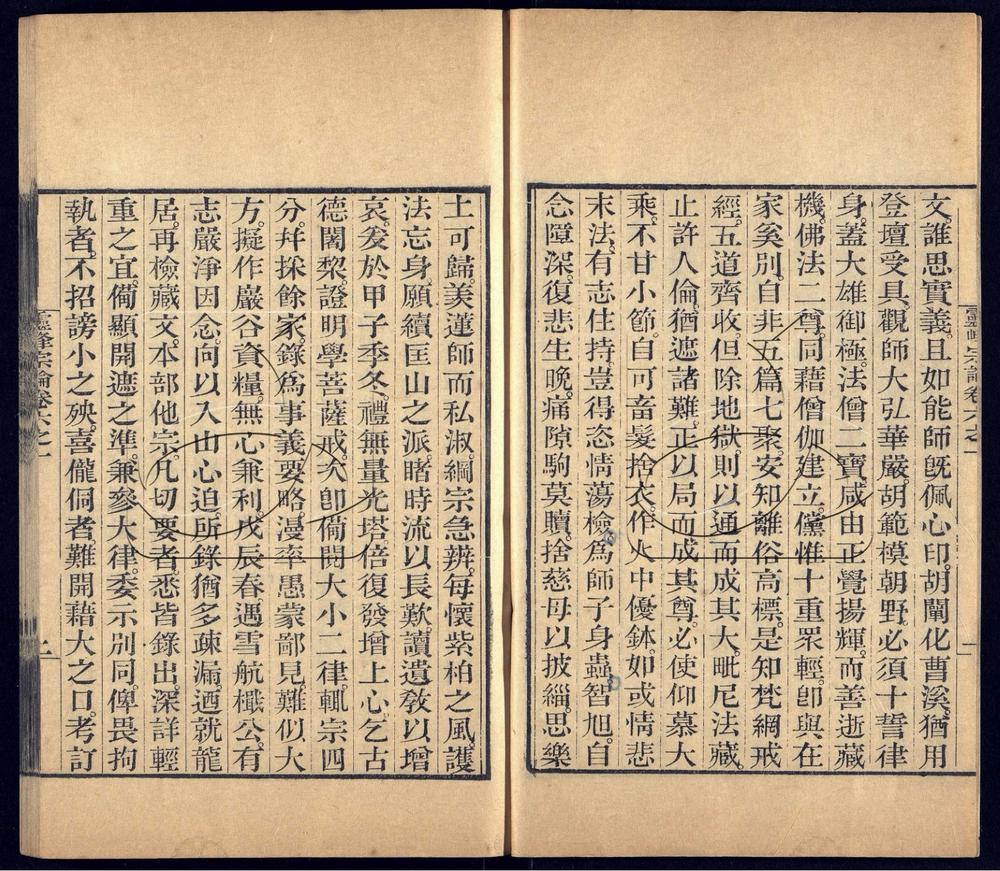 文。誰思實義。且如能師旣佩心印。胡闡化曹溪。猶用
登壇受具。觀師大弘華嚴。胡範模朝野。必須十誓律
身。蓋大雄御極。法僧二寶。咸由正覺揚輝。而善逝藏
機。佛法二尊。同藉僧伽建立。儻惟十重眾輕。卽與在
家奚別。自非五篇七聚。安知離俗高標。是知梵綱戒
經。五道齊收。但除地獄。則以通而成其大。毗尼法藏。
止許人倫。猶遮諸難。正以局而成其尊。必使仰慕大
乘。不甘小節。自可畜髮捨衣。作火中優鉢。如或情悲
末法。有志住持。豈得恣情蕩檢。爲師子身蟲。智旭。自
念障深。復悲生晚。痛隙駒莫贖。捨慈母以披緇。思樂
土可歸。羨蓮師而私淑。綱宗急辨。每懷紫柏之風。護
法忘身。願續匡山之派。睹時流以長歎。讀遺敎以增
哀。爰於甲子季冬。禮無量光塔。倍復發增上心。乞古
德闍黎。證明學菩薩戒。次卽僃閱大小二律。輒宗四
分。幷採餘家。錄爲事義要略。漫率愚蒙鄙見。難似大
方。擬作巖谷資糧。無心兼利。戊辰春。遇雪航檝公。有
志嚴淨。因念向以入山心迫。所錄猶多疎漏。迺就龍
居。再檢藏文。本部他宗。凡切要者。悉皆錄出。深詳輕
重之宜。僃顯開遮之準。兼參大律。委示別同。俾畏拘
執者。不招謗小之殃。喜儱侗者。難開藉大之口。考訂
靈峰宗論卷六之一
一
靈峰宗論卷六之一